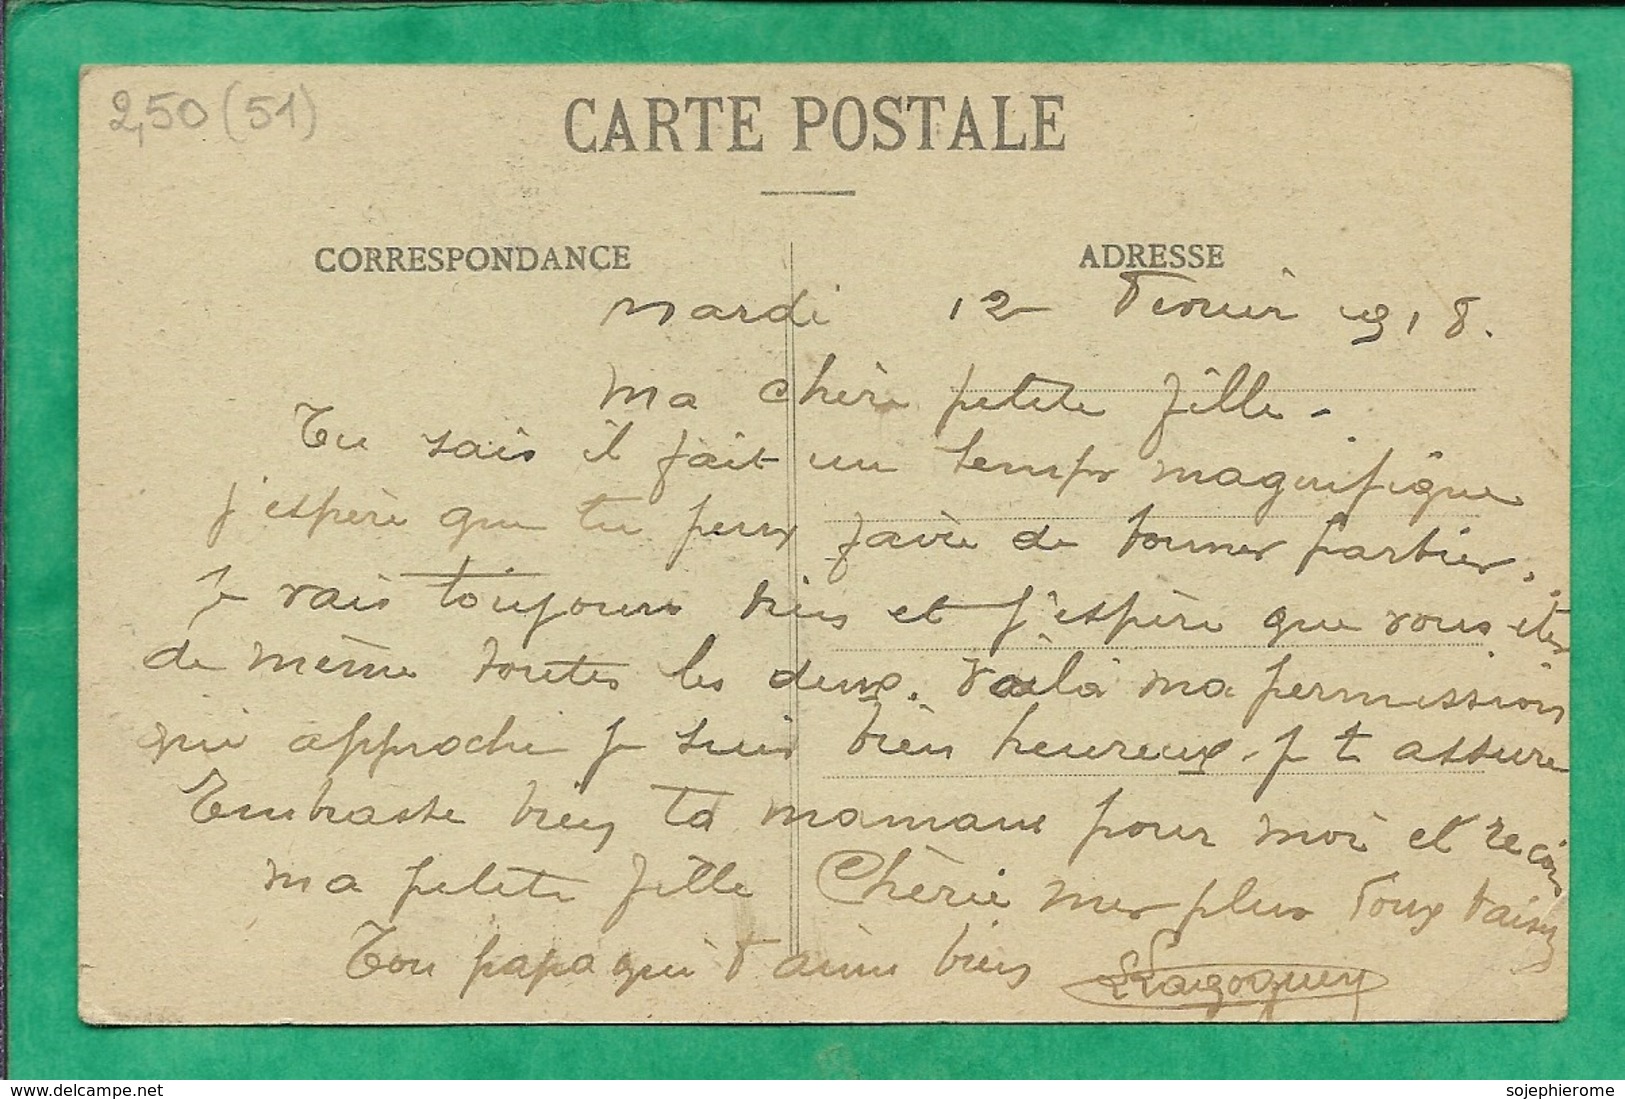 2,50 (51)
CARTE POSTALE
CORRESPONDANCE
ADRESSE
Mardi 12 Fevrier 1918.
Ma chère petite fille -
Tu sais il fait un temps magnifique
j'espère que tu peux faire de bonnes parties.
Je vais toujours bien et j'espère que vous etes
de même toutes les deux. Voilà ma permission
qui approche je suis bien heureux. je t assure
Embrasse bien ta maman pour moi et recois
ma petite fille Chérie mes plus doux baisers
Ton papa qui t'aime bien
www.delcampe.net
sojephierome